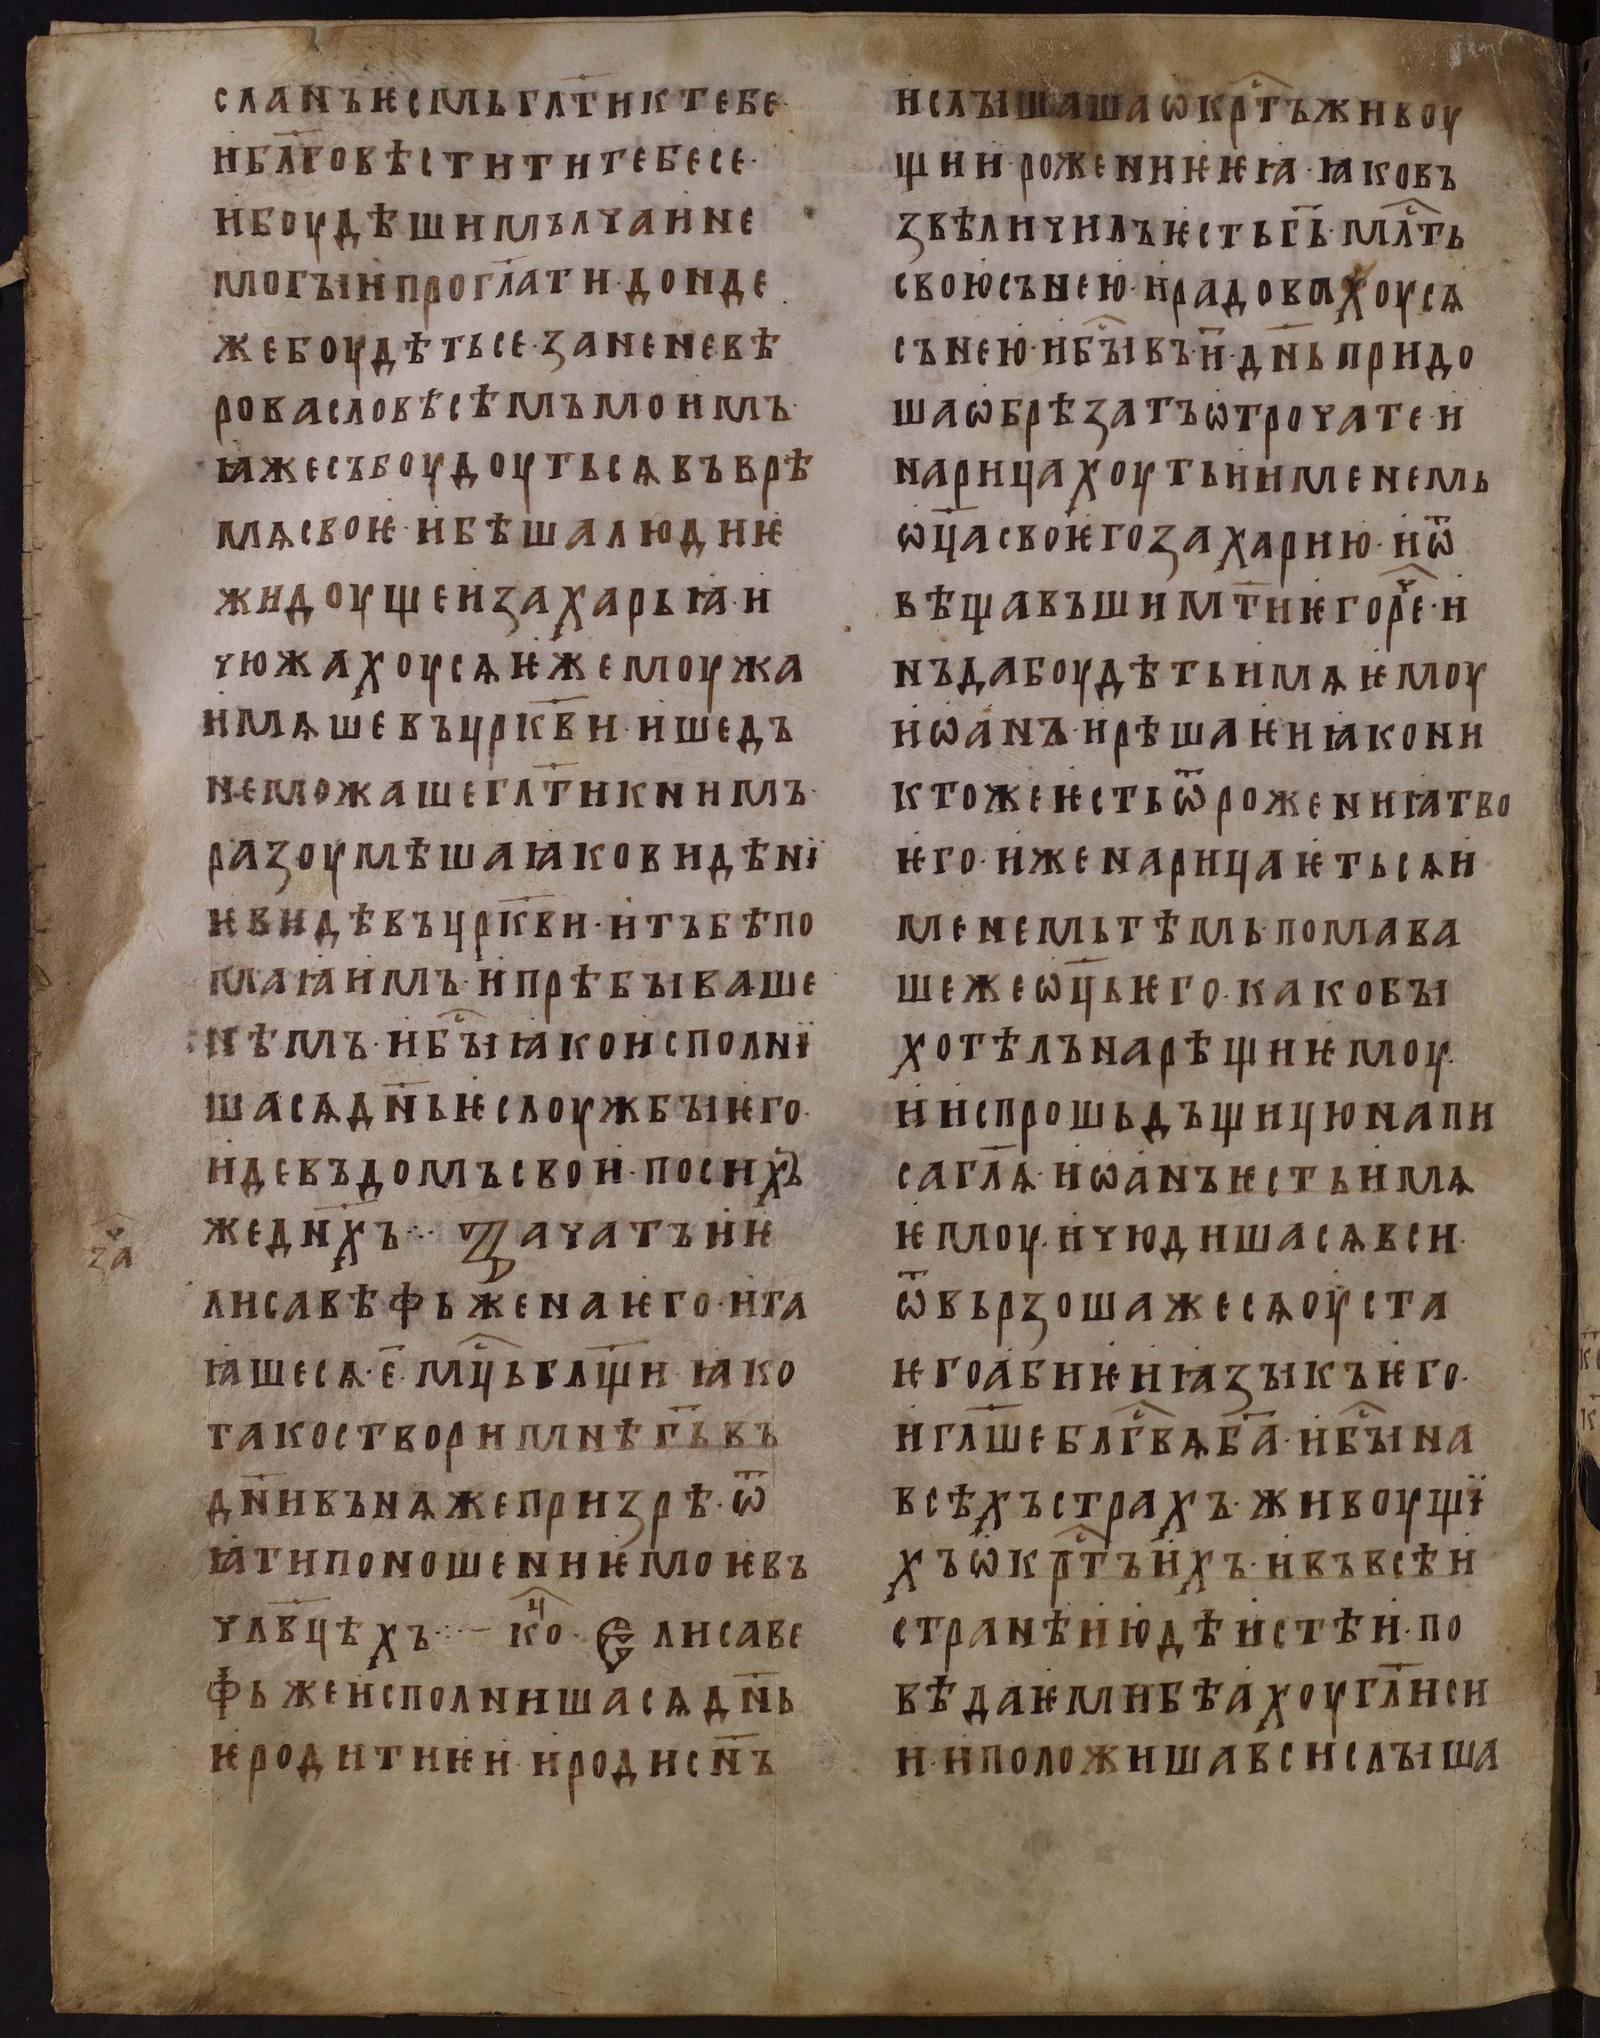 сланъѥсмьгл҃тиктебе·
ибл҃говѣстититебесе·
ибоудѣшимълчаине
могꙑипрогл҃ати·донде
жебоудѣтьсе·заненевѣ
ровасловѣсѣмъмоимъ·
ꙗжесъбоудоутьсѧвъврѣ
мѧсвоѥ·ибѣшалюдиѥ
жидоущеизахарьꙗ·и
чюжахоусѧѥжемоужа
имѧшевъцркв҃и·ишедъ
неможашегл҃тикнимъ·
разоумѣшаꙗковидѣнї
ѥвидѣвъцркв҃и·итъбѣпо
маꙗимъ·ипрѣбꙑваше
нѣмъ·ибꙑⷭ҇ꙗкоисполнї
шасѧдн҃ьѥслоужбꙑѥго·
идевъдомъсвои·посихъ
жедн҃хъ·:· Зачатъиѥ
за҇ч
лисавѣфьженаѥго·ита
ꙗшесѧ·е҃·мцⷭ҇ьглщ҃и·ꙗко
такостворимнѣгⷭ҇ьвъ
дн҃ивънѧжепризрѣ·ѿ
ꙗтипоношениѥмоѥвъ
члв҃цѣхъ·:·— коⷰ҇· Єлисаве
фьжеисполнишасѧдн҃ь
ѥродитиѥи·иродисн҃ъ
ислꙑшашаѡкрⷭ҇тъживоу
щии·рожениѥѥꙗ·ꙗковъ
звѣличилъѥстьгь҃·млⷭ҇ть
своюсънею·ирадовахоусѧ
сънею·ибꙑⷭ҇въ·и҃·дн҃ьпридо
шаѡбрѣзатъѡтрочате·и
нарицахоутьиименемь
ѡц҃асвоѥгозахарию·иѿ
вѣщавъшимт҃иѥгореⷱ҇·и
нъдабоудѣтьимѧѥмоу
иѡанъ·ирѣшаѥиꙗкони
ктожеѥстьѿрожениꙗтво
ѥго·иженарицаѥтьсѧи
менемьтѣмь·помава
шежеѡц҃ьѥго·какобꙑ
хотѣлънарѣщиѥмоу·
ииспрошьдъщицюнапи
сагл҃ѧ·иѡанъѥстьимѧ
ѥмоу·ичюдишасѧвси·
ѿвьрзошажесѧоуста
ѥгоабиѥиꙗзꙑкъѥго·
иглш҃еблгⷭ҇вѧба҃·ибꙑⷭ҇на
всѣхъстрахъ·живоущї
хъѡкрⷭ҇тъихъ·ивъвсѣи
странѣиюдѣистѣи·по
вѣдаѥмибѣахоугл҃иси
и·иположишавсислꙑша